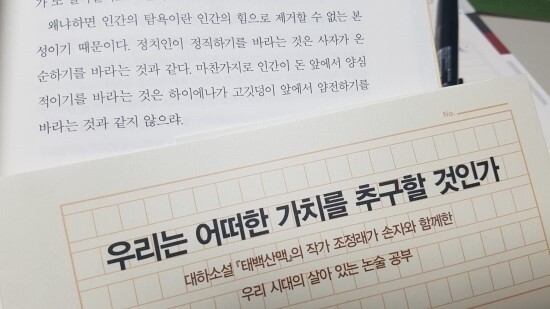 왜냐하면 인간의 탐욕이란 인간의 힘으로 제거할 수 없는 본
성이기 때문이다. 정치인이 정직하기를 바라는 것은 사자가 온
순하기를 바라는 것과 같다. 마찬가지로 인간이 돈 앞에서 양심
적이기를 바라는 것은 하이에나가 고깃덩이 앞에서 얌전하기를
바라는 것과 같지 않으랴.
No.
우리는 어떠한 가치를 추구할 것인가
대하소설 『태백산맥』의 작가 조정래가 손자와 함께한
우리 시대의 살아 있는 논술 공부